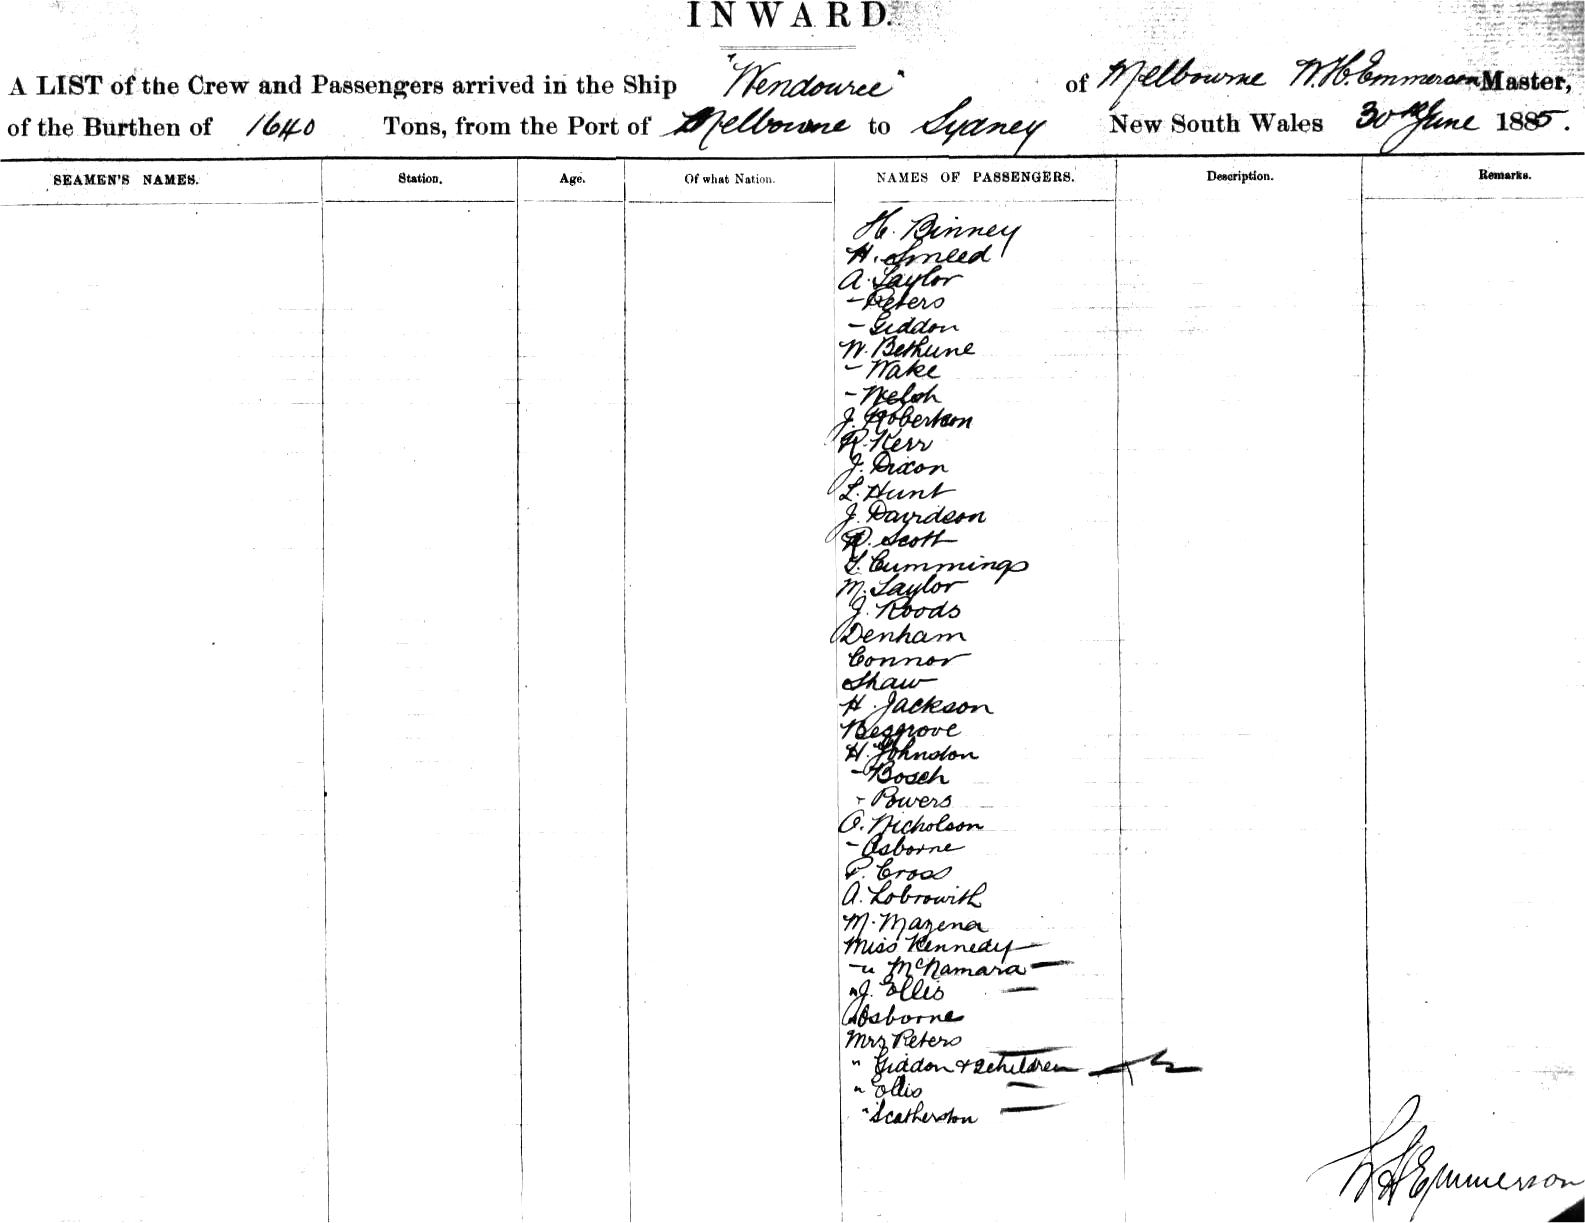 INWARD.
A LIST of the Crew and Passengers arrived in the Ship "Wendouree" of Melbourne W.H. Emmerson Master,
of the Burthen of 1640 Tons, from the Port of Melbourne to Sydney New South Wales 30th June 1885.
SEAMEN'S NAMES. Station. Age. Of what Nation. NAMES OF PASSENGERS. Description. Remarks.
H. Binney
H. Smeed
A. Taylor
- Peters
- Giddon
W. Bethune
- Wake
- Welsh
J. Robertson
R. Kerr
J. Dixon
L. Hunt
J. Davidson
R. Scott
T. Cummings
M. Taylor
J. Woods
Denham
Connor
Shaw
H. Jackson
Besgrove
H. Johnston
- Bosch
- Powers
O. Nicholson
- Osborne
P. Cross
A. Lobrowith
M. Mazena
Miss Kennedy
- " McNamara -
" J. Ellis -
Osborne
Mrs Peters
" Giddon & 2 children
" Ellis -
" Scatherston -
W H Emmerson